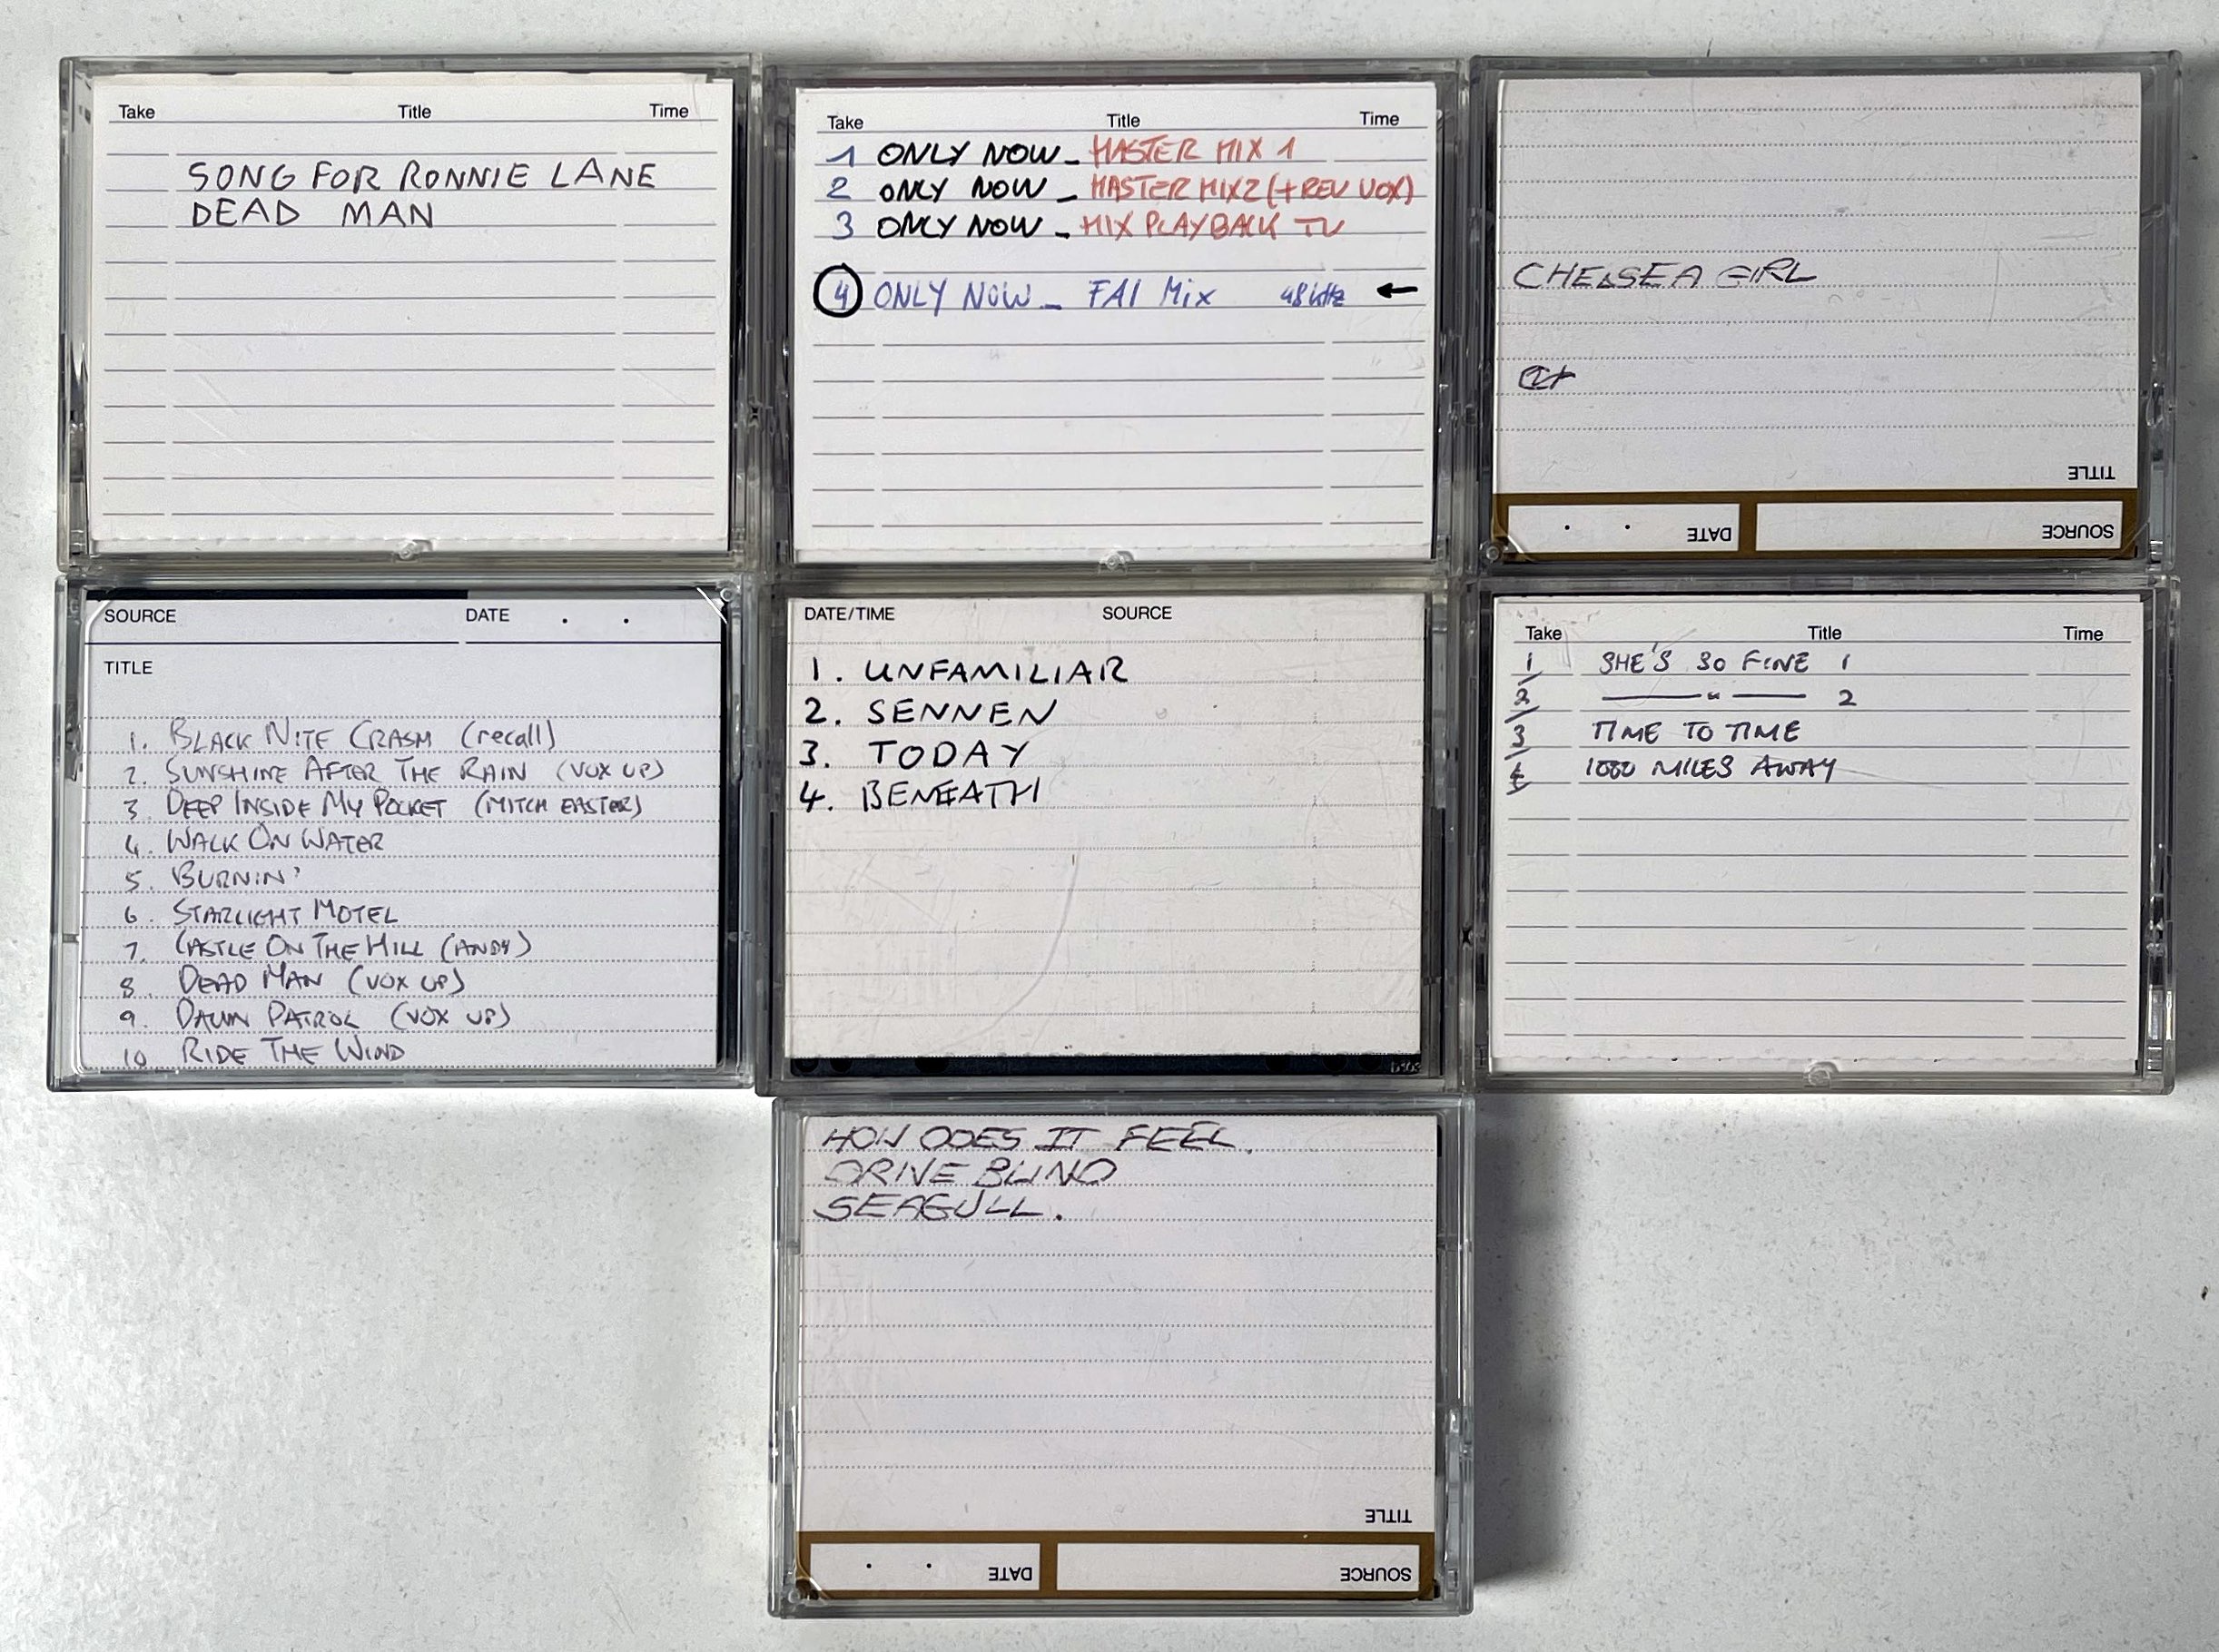 Take Title Time
SONG FOR RONNIE LANE
DEAD MAN
Take Title Time
1 ONLY NOW - MASTER MIX 1
2 ONLY NOW - MASTER MIX 2 (+REV VOX)
3 ONLY NOW - MIX PLAYBACK TV
4 ONLY NOW - FAI Mix 48 kHz ←
CHELSEA GIRL
TITLE
DATE . . SOURCE
SOURCE DATE . .
TITLE
1. BLACK NITE CRASH (recall)
2. SUNSHINE AFTER THE RAIN (VOX UP)
3. DEEP INSIDE MY POCKET (MITCH EASTER)
4. WALK ON WATER
5. BURNIN'
6. STARLIGHT MOTEL
7. CASTLE ON THE HILL (ANDY)
8. DEAD MAN (VOX UP)
9. DAWN PATROL (VOX UP)
10 RIDE THE WIND
DATE/TIME SOURCE
1. UNFAMILIAR
2. SENNEN
3. TODAY
4. BENEATH
Take Title Time
1 SHE'S SO FINE 1
2 —— " —— 2
3 TIME TO TIME
4 1000 MILES AWAY
HOW DOES IT FEEL.
DRIVE BLIND
SEAGULL.
TITLE
DATE . . SOURCE